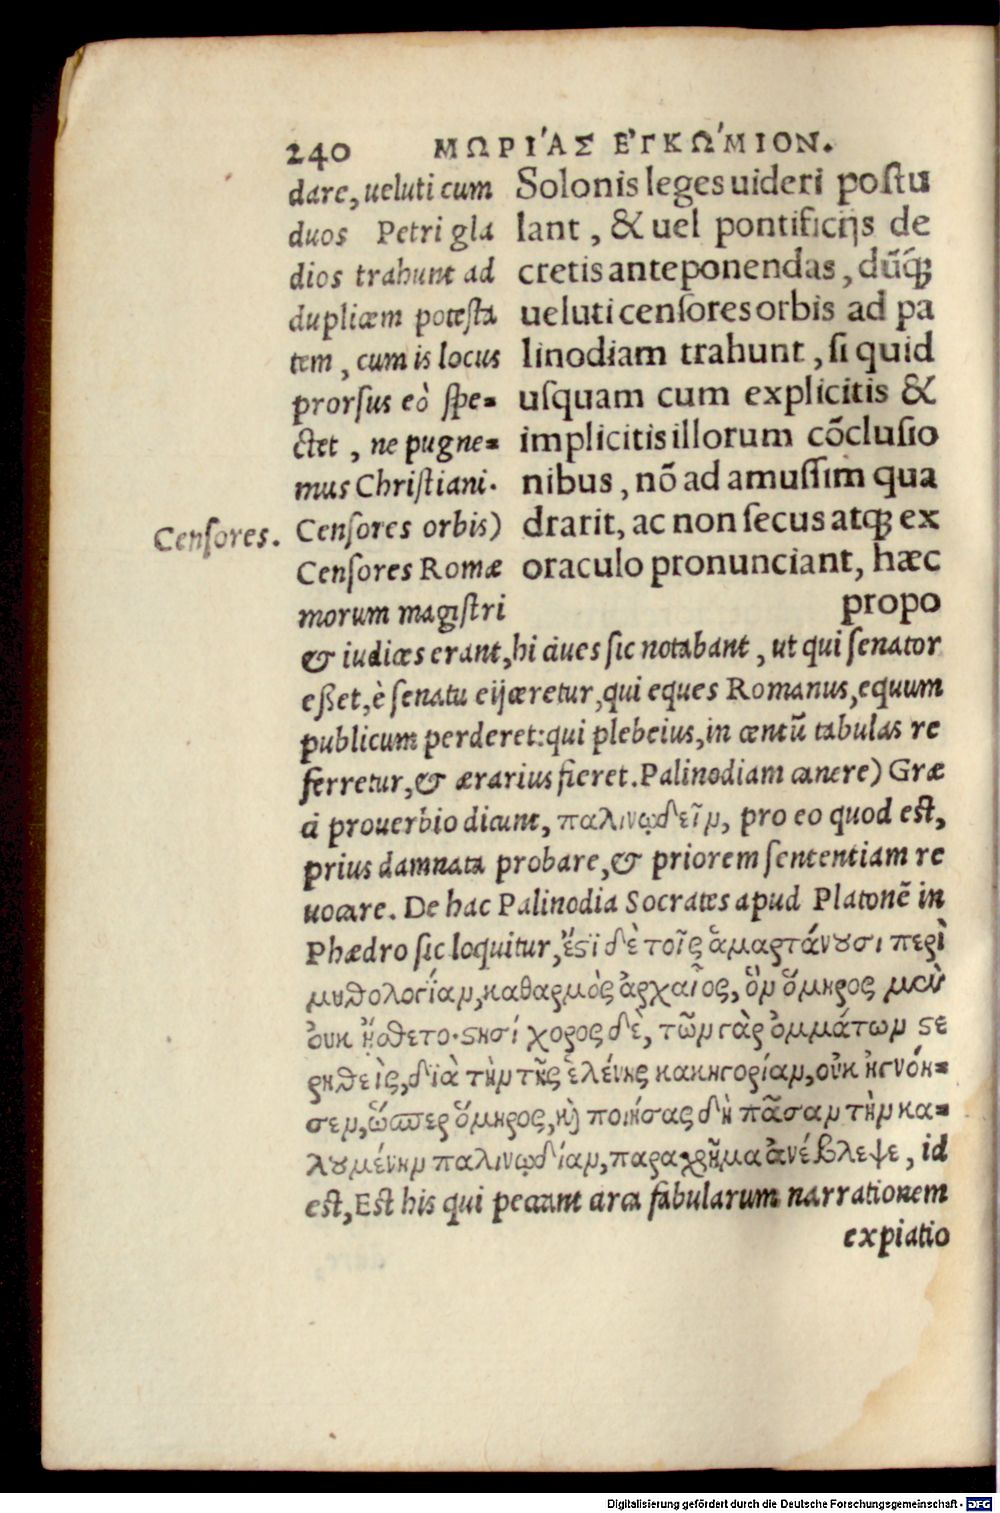 240 ΜΩΡΙ'ΑΣ Ε'ΓΚΩ'ΜΙΟΝ.
Solonis leges uideri poſtu
lant, & uel pontificijs de
cretis anteponendas, dũq́;
ueluti cenſores orbis ad pa
linodiam trahunt, ſi quid
uſquam cum explicitis &
implicitis illorum cõcluſio
nibus, nõ ad amuſſim qua
drarit, ac non ſecus atq; ex
oraculo pronunciant, hæc
propo
dare, ueluti cum
duos Petri gla
dios trahunt ad
duplicem poteſta
tem, cum is locus
prorſus eò ſpe-
ctet, ne pugne-
mus Chriſtiani.
Cenſores.
Cenſores orbis)
Cenſores Romæ
morum magiſtri
& iudices erant, hi ciues ſic notabant, ut qui ſenator
eßet, è ſenatu eijceretur, qui eques Romanus, equum
publicum perderet: qui plebeius, in centũ tabulas re
ferretur, & ærarius fieret. Palinodiam canere) Græ
ci prouerbio dicunt, παλινῳδεῖν, pro eo quod eſt,
prius damnata probare, & priorem ſententiam re
uocare. De hac Palinodia Socrates apud Platonẽ in
Phædro ſic loquitur, ἔϛϊ δὲ τοῖς ἁμαρτάνουσι περὶ
μυθολογίαν, καθαρμὸς ἀρχαῖος, ὃν ὅμηρος μὲν
ουκ ᾔσθετο. ϛησί χορος δὲ, τῶν γὰρ ὀμμάτων ϛε
ρηθεὶς, διὰ τὴν τῆς ἑλένης κακηγορίαν, οὐκ ἠγνόη-
σεν, ὥσπερ ὅμηρος, κ̀ ποιήσας δὴ πᾶσαν τὴν κα-
λουμένην παλινῳδίαν, παραχρῆμα ἀνέβλεψε, id
eſt, Eſt his qui peccant circa fabularum narrationem
expiatio
Digitalisierung gefördert durch die Deutsche Forschungsgemeinschaft - DFG